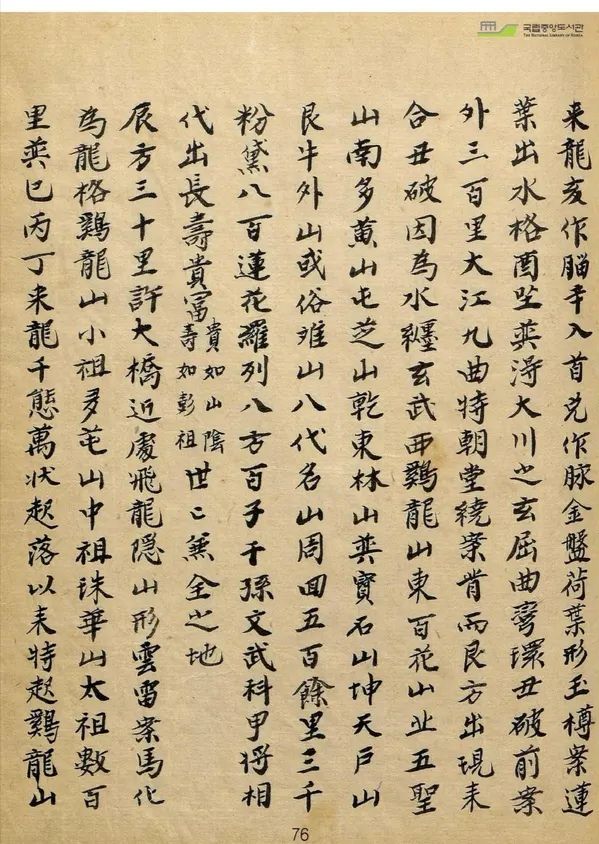 국립중앙도서관
THE NATIONAL LIBRARY OF KOREA
来龍亥作腦辛入首兌作脉金盤荷葉形玉樽案蓮
葉出水格酉坐巽淂大川之玄屈曲彎環丑破前案
外三百里大江九曲特朝堂繞案背而艮方出現来
合丑破因為水纏玄武西鷄龍山東百花山北五聖
山南多黃山屯芝山乾東林山巽寶石山坤天戶山
艮牛外山或俗难山八代名山周回五百餘里三千
粉黛八百蓮花羅列八方百子千孫文武科甲将相
代出長壽貴富貴如山陰壽如彭祖世〻無全之地
辰方三十里許大橋近處飛龍隐山形雲雷案馬化
為龍格鷄龍山小祖多芚山中祖珠華山太祖數百
里巽巳丙丁来龍千態萬状起落以来特起鷄龍山
76